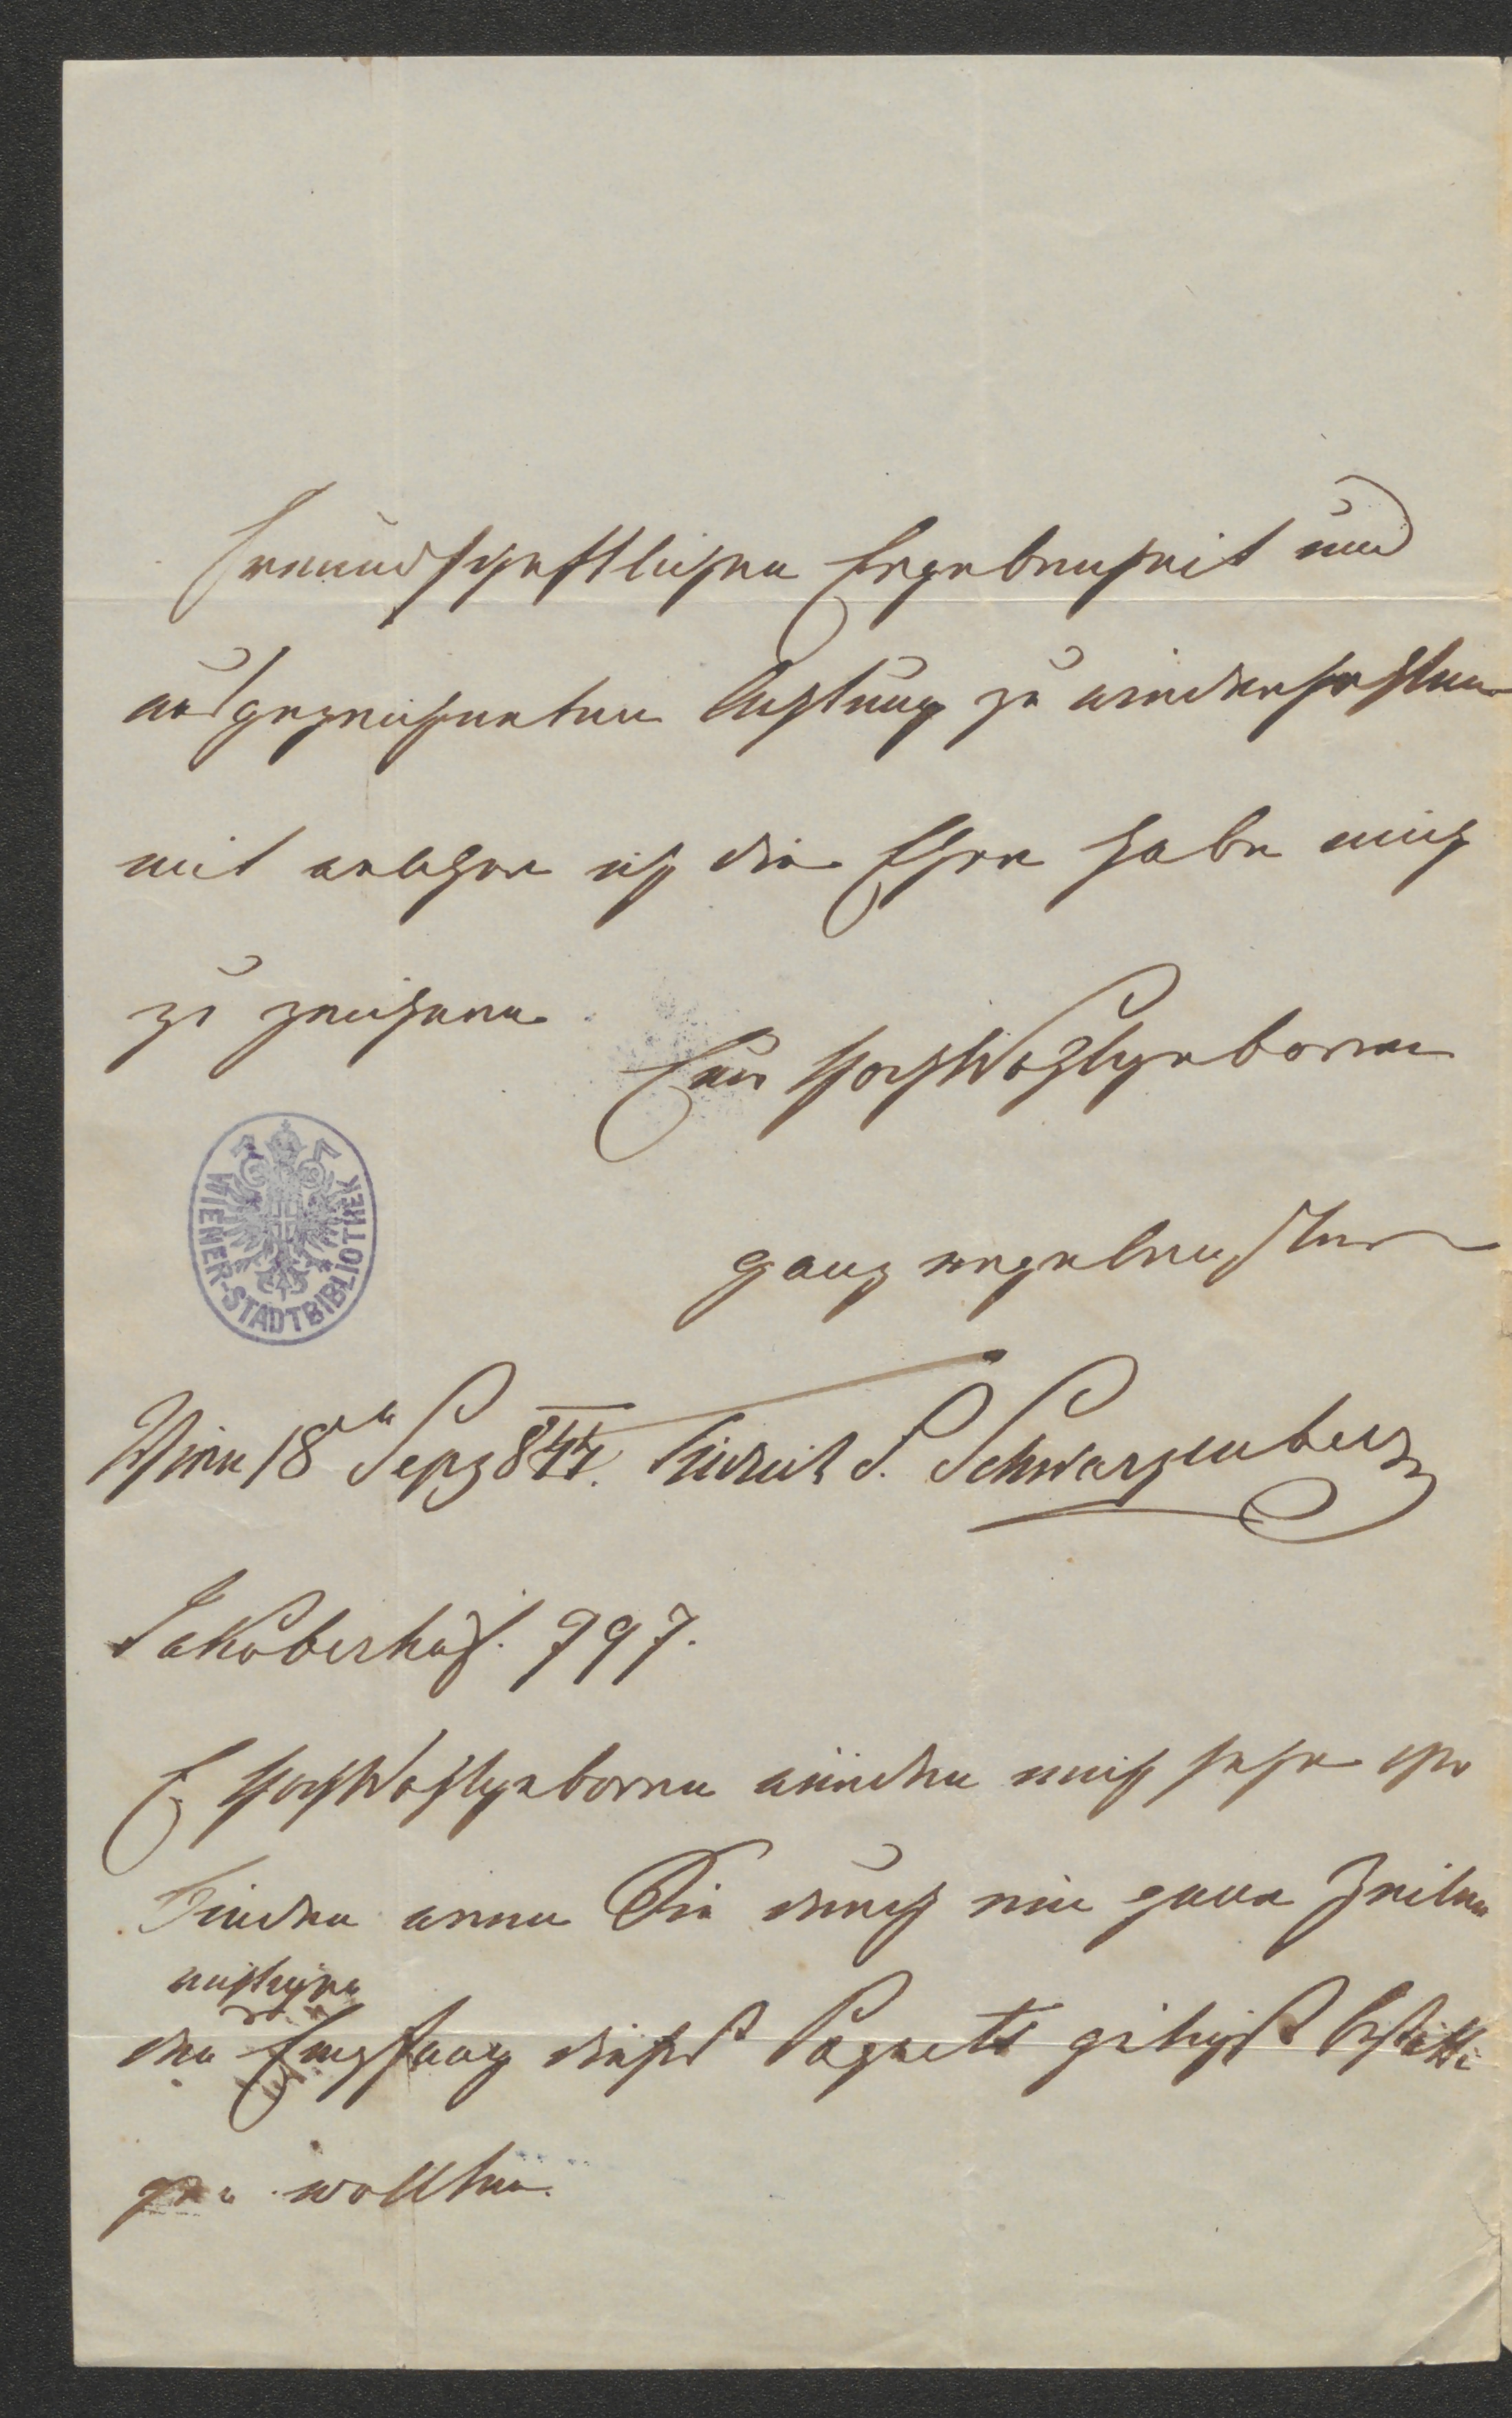 freundschaftlichen Ergebenheit und
ausgezeichneten Achtung zu wiederhohlen
mit welcher ich die Ehre habe mich
zu zeichnen
Euer HochWohlgeboren
ganz ergebenster
WIENER-STADTBIBLIOTHEK
Wien 18n Sept 844. Friedrich S. Schwarzenberg
Jakoberhof. 797.
E HochWohlgeboren würden mich sehr ver
binden wenn Sie durch ein paar Zeilen
den Empfang dieses Paquets gütigst bestätti
gen wollten.